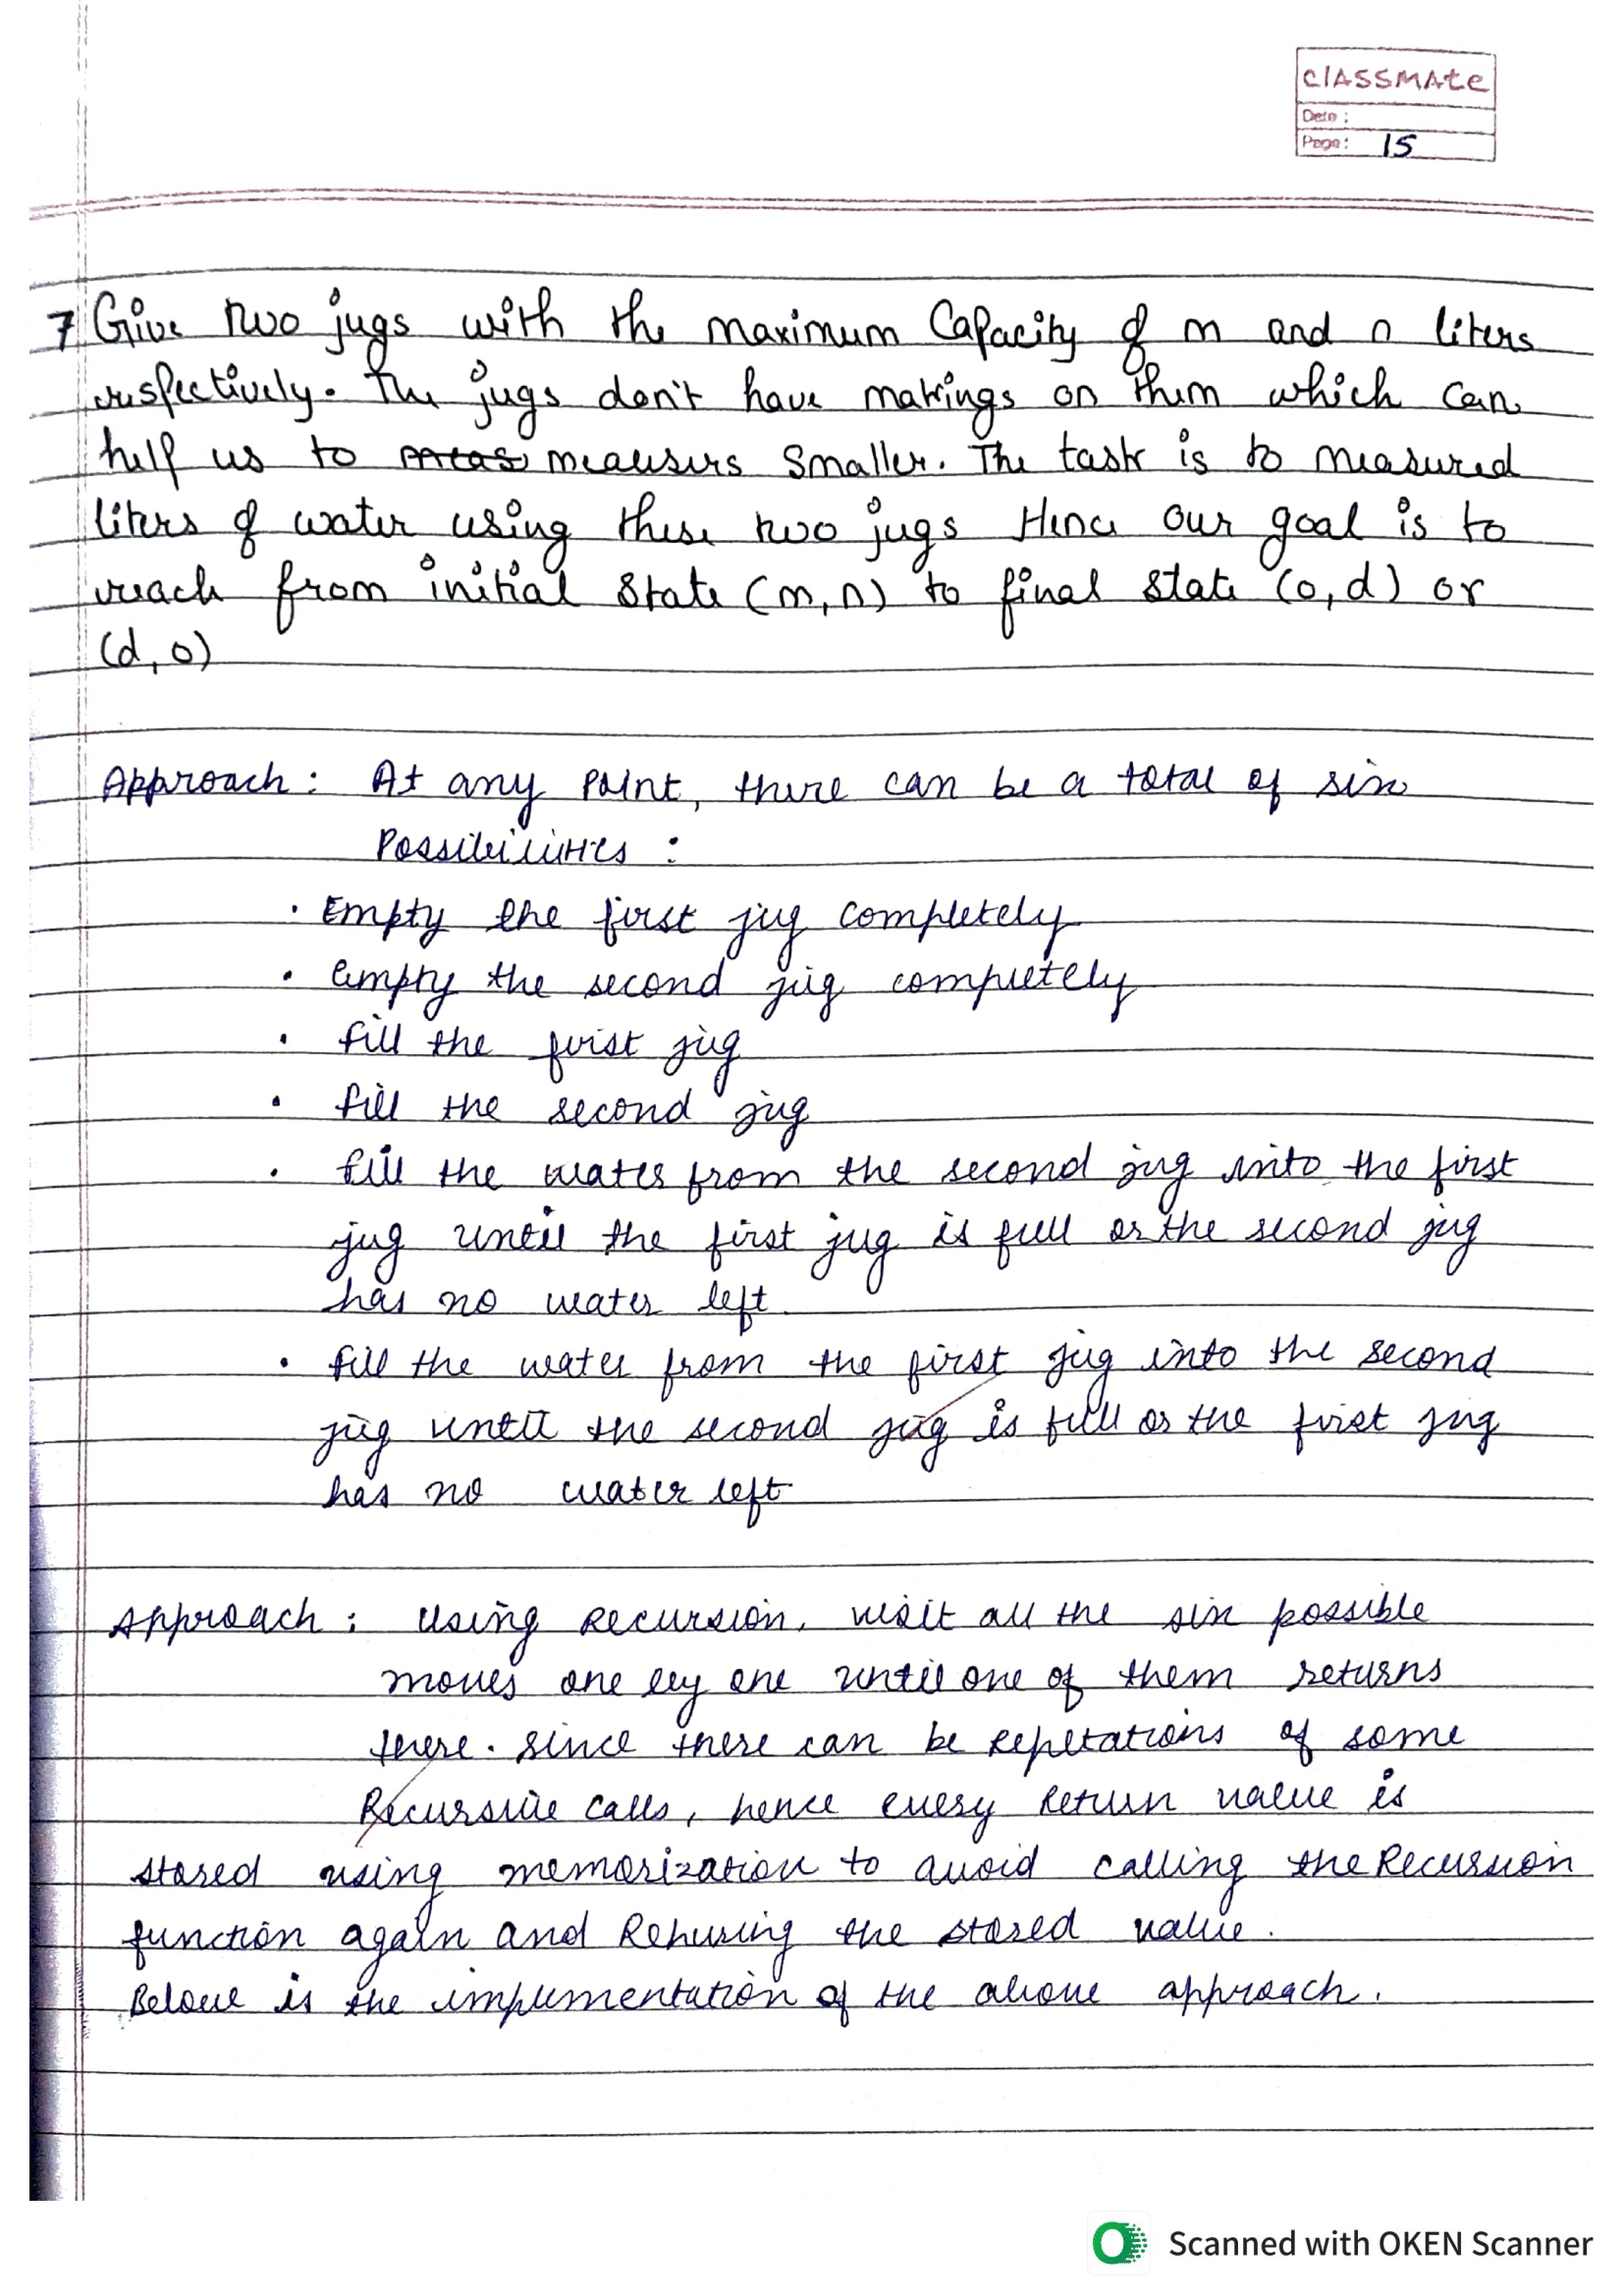 classmate
Date :
Page : 15
7 Give two jugs with the maximum Capacity of m and n liters
respectively. The jugs don't have markings on them which can
help us to measures Smaller. The task is to measured
liters of water using these two jugs Hence our goal is to
reach from initial State (m, n) to final state (o, d) or
(d, o)
Approach : At any point, there can be a total of six
Possibilities :
• Empty the first jug completely
• empty the second jug completely
• fill the first jug
• fill the second jug
• fill the water from the second jug into the first
jug until the first jug is full or the second jug
has no water left
• fill the water from the first jug into the second
jug until the second jug is full or the first jug
has no water left
Approach : Using Recursion, visit all the six possible
moves one by one until one of them returns
there. Since there can be Repetations of some
Recursive calls, hence every return value is
stored using memorization to avoid calling the Recursion
function again and Rehusing the stored value.
Below is the implementation of the above approach.
Scanned with OKEN Scanner